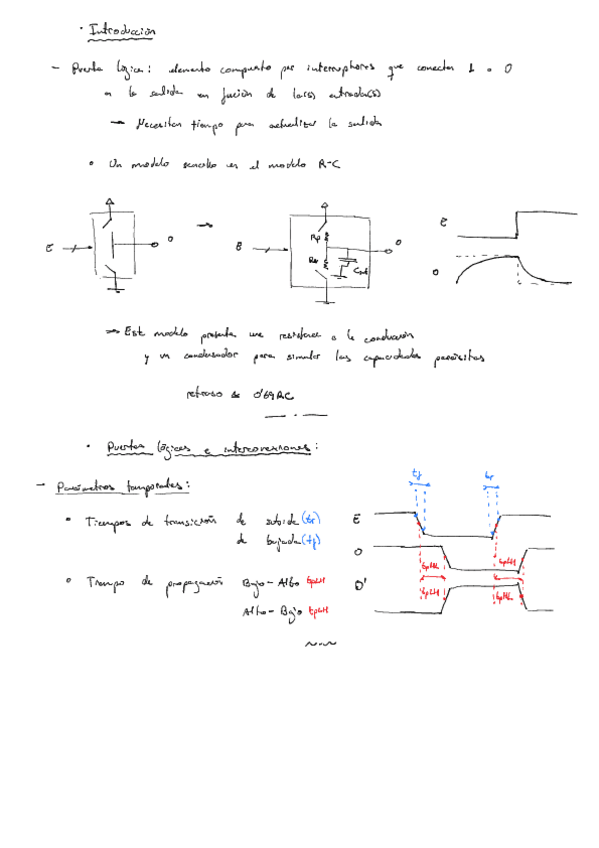 · Introducción
- Puerta lógica: elemento compuesto por interruptores que conectan 1 o 0
a la salida en función de la(s) entrada(s)
→ Necesitan tiempo para actualizar la salida
• Un modelo sencillo es el modelo R-C
E O → E Rp Rn O E O
→ Este modelo presenta una resistencia a la conducción
y un condensador para simular las capacidades parásitas
retraso de 0'69RC
· Puertas lógicas e interconexiones:
- Parámetros temporales:
tf tr
• Tiempos de transición de subida (tr)
de bajada (tf)
E
O tpHL tpLH
• Tiempo de propagación Bajo-Alto tpLH
O' tpLH tpHL
Alto-Bajo tpLH